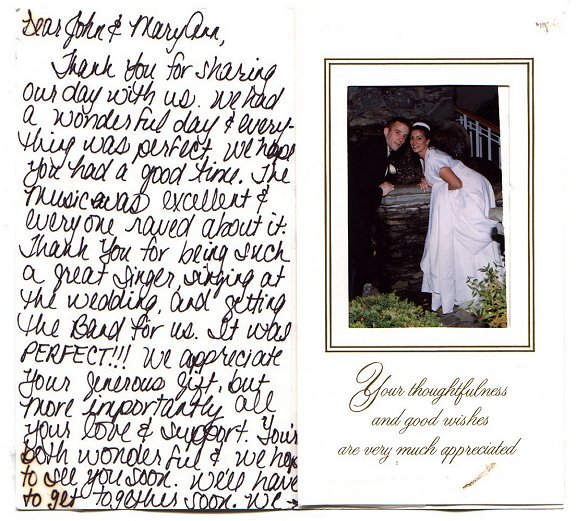 Dear John & MaryAnn,
Thank You for sharing
our day with us. We had
a wonderful day & every-
thing was perfect. We hope
you had a good time. The
music was excellent &
everyone raved about it.
Thank You for being such
a great singer, singing at
the wedding, and getting
the Band for us. It was
PERFECT!!! We appreciate
Your generous gift, but
more importantly all
your love & support. You're
both wonderful & we hope
to see you soon. We'll have
to get together soon. We →
Your thoughtfulness
and good wishes
are very much appreciated